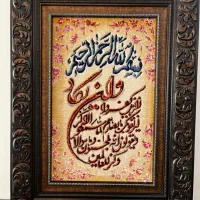 بسم الله الرحمن الرحيم
وان يكاد
الذين كفروا
ليزلقونك بابصارهم لما سمعوا الذكر
ويقولون انه لمجنون وما هو الا
ذكر للعالمين